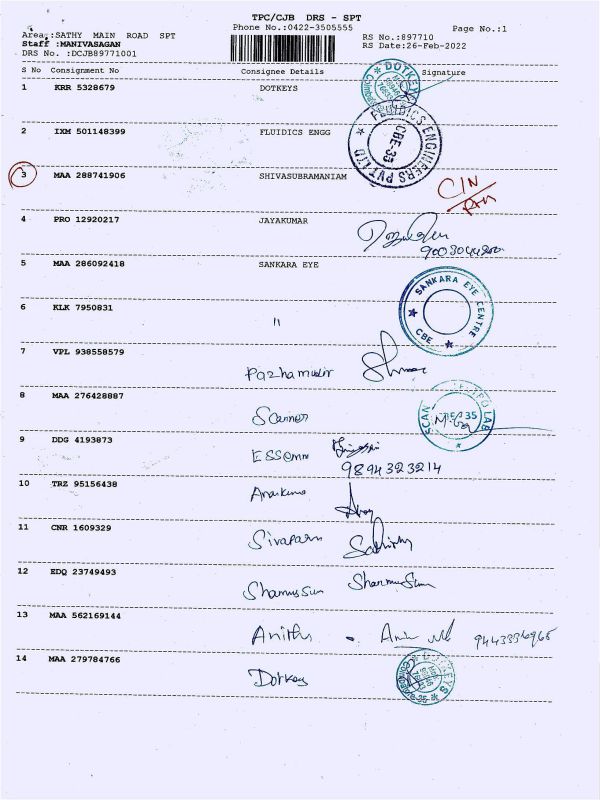 TPC/CJB DRS - SPT
Phone No.:0422-3505555
Page No.:1
Area :SATHY MAIN ROAD SPT
RS No.:897710
Staff :MANIVASAGAN
RS Date:26-Feb-2022
DRS No. :DCJB89771001
S No Consignment No Consignee Details Signature
1 KRR 5328679 DOTKEYS
DOTKEYS
2 IXM 501148399 FLUIDICS ENGG
FLUIDICS ENGINEERS PVT LTD
CBE-35
3 MAA 288741906 SHIVASUBRAMANIAM
C/N
4 PRO 12920217 JAYAKUMAR
5 MAA 286092418 SANKARA EYE
SANKARA EYE CENTRE
CBE
6 KLK 7950831 "
7 VPL 938558579 Pazhamudir
8 MAA 276428887 Scanner
SCAN LAB
9 DDG 4193873 ESSemm
9894323214
10 TRZ 95156438
11 CNR 1609329
12 EDQ 23749493
13 MAA 562169144 Anitha
14 MAA 279784766 Dotkeys
DOTKEYS